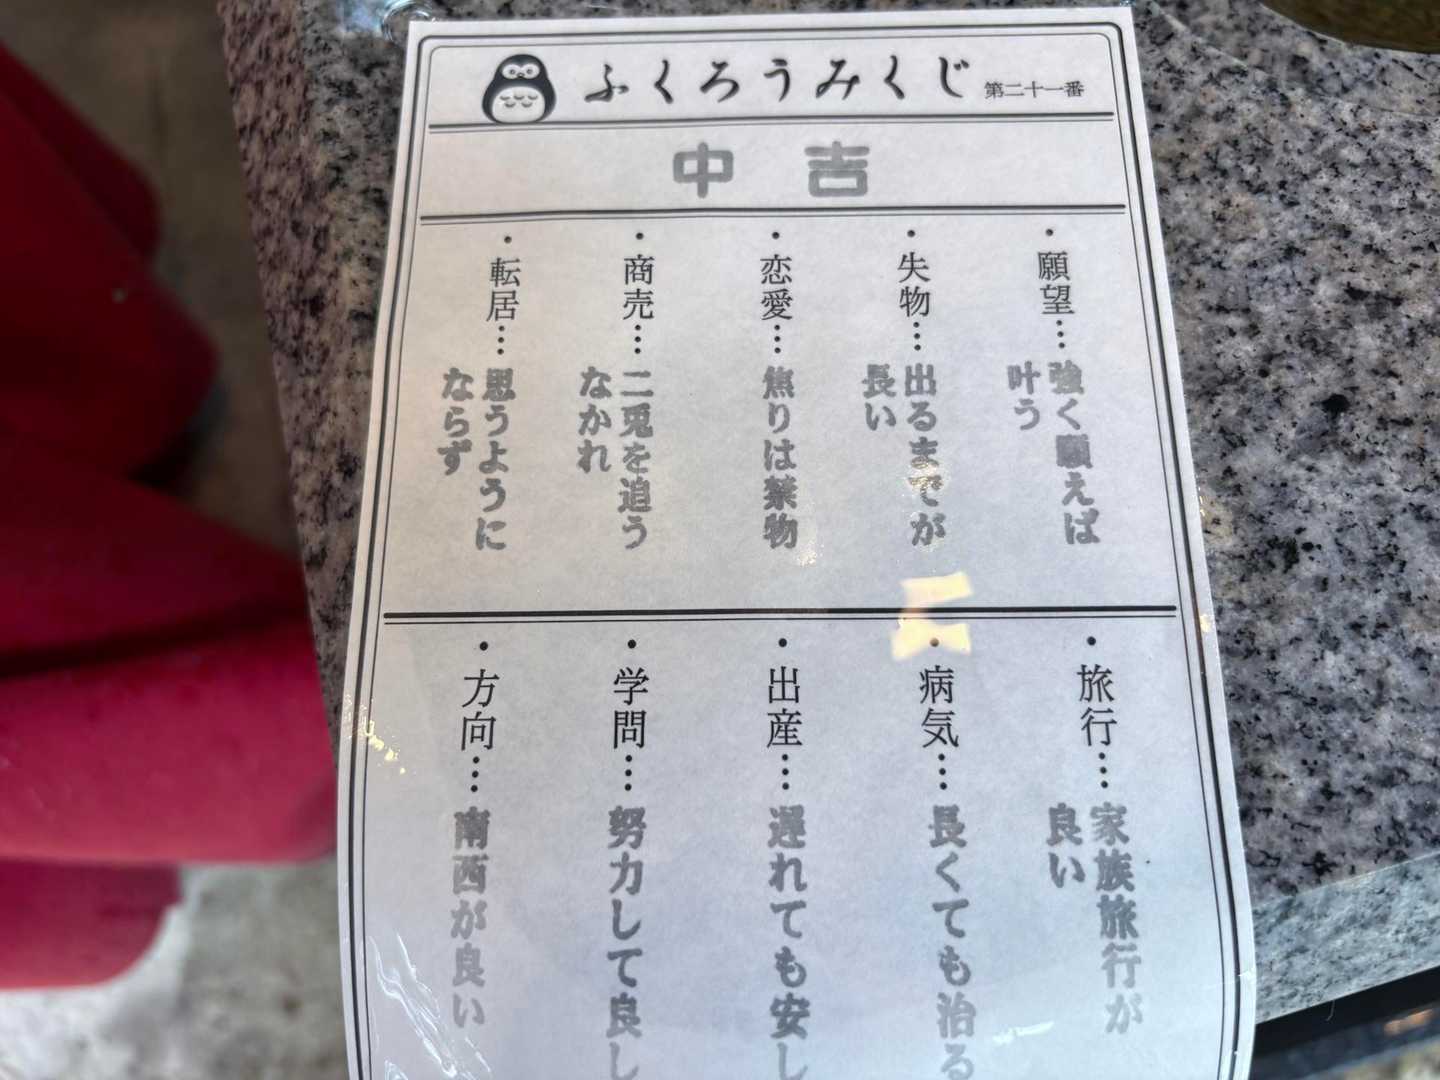 ふくろうみくじ 第二十一番
中吉
・願望…強く願えば
叶う
・失物…出るまでが
長い
・恋愛…焦りは禁物
・商売…二兎を追う
なかれ
・転居…思うように
ならず
・旅行…家族旅行が
良い
・病気…長くても治る
・出産…遅れても安し
・学問…努力して良し
・方向…南西が良い